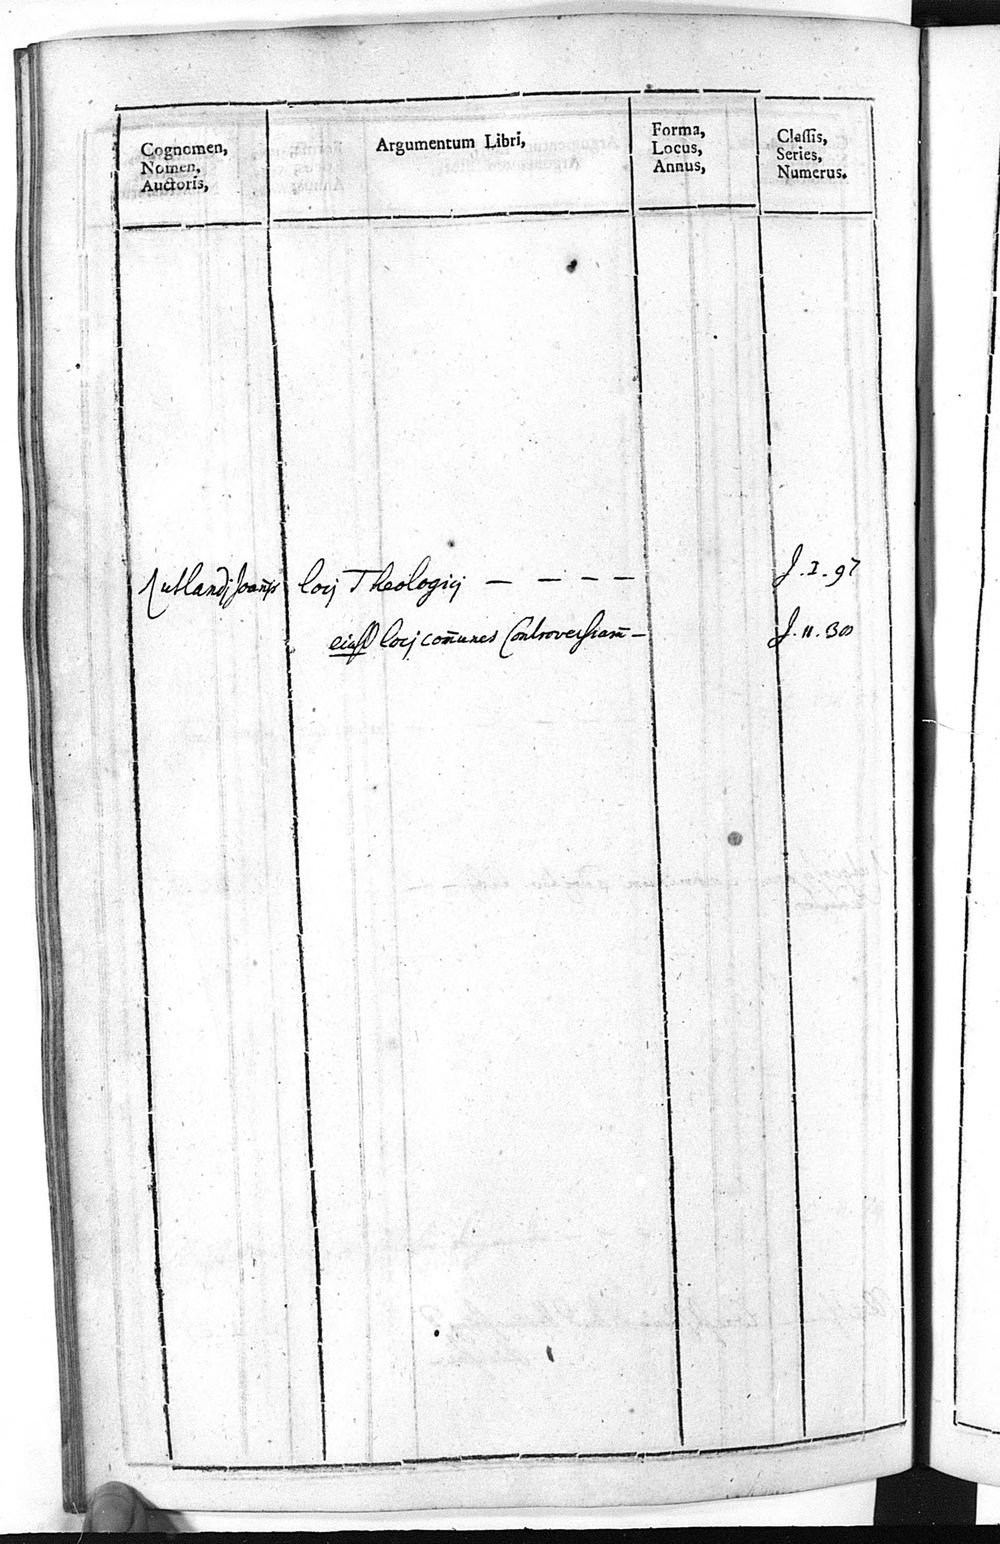 Cognomen,
Nomen,
Auctoris,
Argumentum Libri,
Forma,
Locus,
Annus,
Classis,
Series,
Numerus.
Rutlandj Joañis locj Theologicj — — — — J. I. 97
eiusd locj com̃unes Controversiarũ — J. II. 30